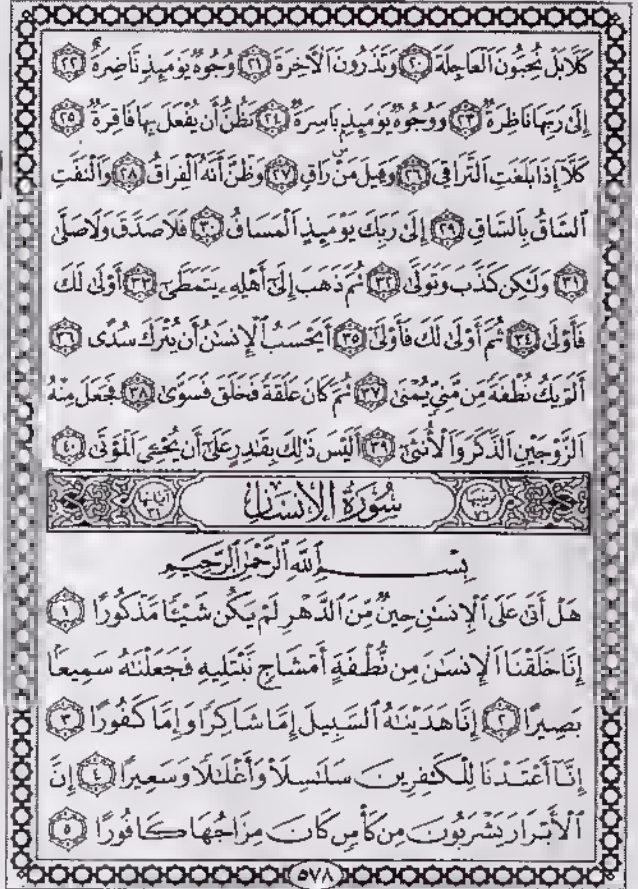 كَلَّا بَلْ تُحِبُّونَ ٱلْعَاجِلَةَ ٢٠ وَتَذَرُونَ ٱلْآخِرَةَ ٢١ وُجُوهٌ يَوْمَئِذٍ نَّاضِرَةٌ ٢٢
إِلَىٰ رَبِّهَا نَاظِرَةٌ ٢٣ وَوُجُوهٌ يَوْمَئِذٍۭ بَاسِرَةٌ ٢٤ تَظُنُّ أَن يُفْعَلَ بِهَا فَاقِرَةٌ ٢٥
كَلَّآ إِذَا بَلَغَتِ ٱلتَّرَاقِىَ ٢٦ وَقِيلَ مَنْ ۜ رَاقٍ ٢٧ وَظَنَّ أَنَّهُ ٱلْفِرَاقُ ٢٨ وَٱلْتَفَّتِ
ٱلسَّاقُ بِٱلسَّاقِ ٢٩ إِلَىٰ رَبِّكَ يَوْمَئِذٍ ٱلْمَسَاقُ ٣٠ فَلَا صَدَّقَ وَلَا صَلَّىٰ
٣١ وَلَٰكِن كَذَّبَ وَتَوَلَّىٰ ٣٢ ثُمَّ ذَهَبَ إِلَىٰٓ أَهْلِهِۦ يَتَمَطَّىٰٓ ٣٣ أَوْلَىٰ لَكَ
فَأَوْلَىٰ ٣٤ ثُمَّ أَوْلَىٰ لَكَ فَأَوْلَىٰٓ ٣٥ أَيَحْسَبُ ٱلْإِنسَٰنُ أَن يُتْرَكَ سُدًى ٣٦
أَلَمْ يَكُ نُطْفَةً مِّن مَّنِىٍّ يُمْنَىٰ ٣٧ ثُمَّ كَانَ عَلَقَةً فَخَلَقَ فَسَوَّىٰ ٣٨ فَجَعَلَ مِنْهُ
ٱلزَّوْجَيْنِ ٱلذَّكَرَ وَٱلْأُنثَىٰٓ ٣٩ أَلَيْسَ ذَٰلِكَ بِقَٰدِرٍ عَلَىٰٓ أَن يُحْۦِىَ ٱلْمَوْتَىٰ ٤٠
ترتيبها ٧٦ سُورَةُ ٱلْإِنسَانِ آياتها ٣١
بِسْمِ ٱللَّهِ ٱلرَّحْمَٰنِ ٱلرَّحِيمِ
هَلْ أَتَىٰ عَلَى ٱلْإِنسَٰنِ حِينٌ مِّنَ ٱلدَّهْرِ لَمْ يَكُن شَيْـًٔا مَّذْكُورًا ١
إِنَّا خَلَقْنَا ٱلْإِنسَٰنَ مِن نُّطْفَةٍ أَمْشَاجٍ نَّبْتَلِيهِ فَجَعَلْنَٰهُ سَمِيعًۢا
بَصِيرًا ٢ إِنَّا هَدَيْنَٰهُ ٱلسَّبِيلَ إِمَّا شَاكِرًا وَإِمَّا كَفُورًا ٣
إِنَّآ أَعْتَدْنَا لِلْكَٰفِرِينَ سَلَٰسِلَا۟ وَأَغْلَٰلًا وَسَعِيرًا ٤ إِنَّ
ٱلْأَبْرَارَ يَشْرَبُونَ مِن كَأْسٍ كَانَ مِزَاجُهَا كَافُورًا ٥
٥٧٨